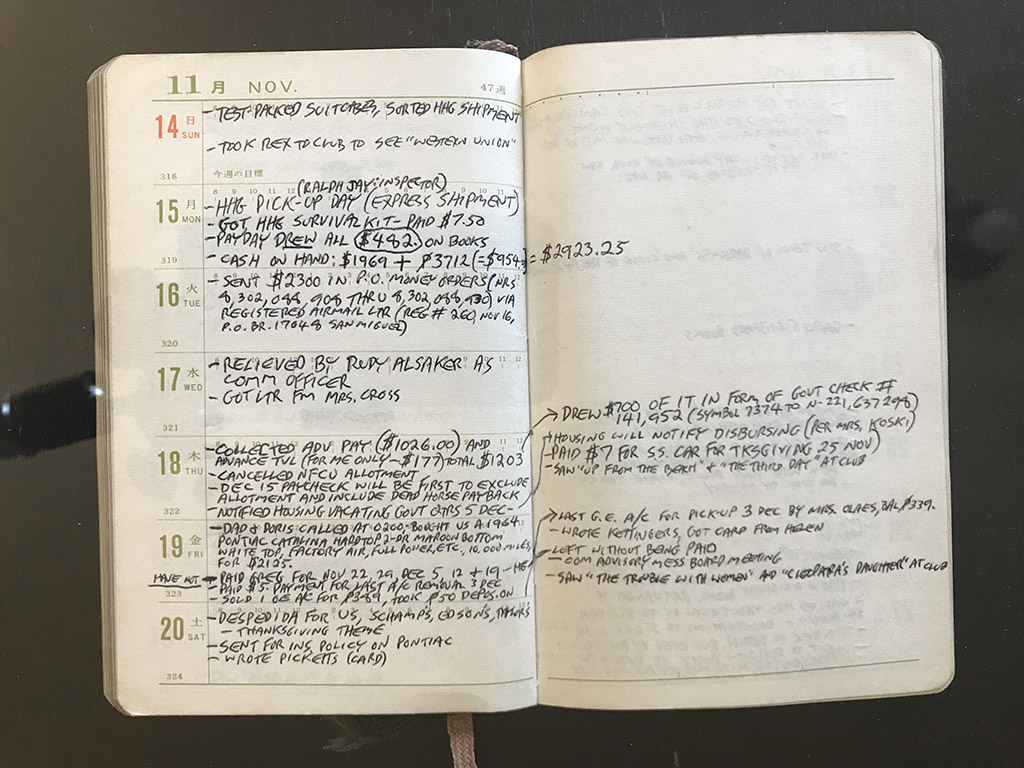 11月 NOV. 47週
14 日 SUN
- TEST-PACKED SUITCASES, SORTED HHG SHIPMENT
- TOOK REX TO CLUB TO SEE "WESTERN UNION"
318 今週の目標
(RALPH JAY: INSPECTOR)
15 月 MON
- HHG PICK-UP DAY (EXPRESS SHIPMENT)
- GOT HHG SURVIVAL KIT - PAID $7.50
- PAYDAY DREW ALL $482. ON BOOKS
319 - CASH ON HAND: $1969 + ₱3712 (=$954.) = $2923.25
16 火 TUE
- SENT $2300 IN P.O. MONEY ORDERS (NRS
8,302,088,908 THRU 8,302,088,930) VIA
REGISTERED AIRMAIL LTR (REG # 260, NOV 16,
P.O. BR. 17048 SAN MIGUEL)
320
17 水 WED
- RELIEVED BY RUDY ALSAKER AS
COMM OFFICER
- GOT LTR FM MRS. CROSS
321
18 木 THU
- COLLECTED ADV PAY ($1026.00) AND
ADVANCE TVL (FOR ME ONLY - $177) TOTAL $1203
- CANCELLED NFCU ALLOTMENT
- DEC 15 PAYCHECK WILL BE FIRST TO EXCLUDE
ALLOTMENT AND INCLUDE DEAD HORSE PAYBACK
322 - NOTIFIED HOUSING VACATING GOVT QTRS 5 DEC -
19 金 FRI
- DAD & DORIS CALLED AT 0200 - BOUGHT US A 1964
PONTIAC CATALINA HARDTOP 2-DR MAROON BOTTOM
WHITE TOP, FACTORY AIR, FULL POWER, ETC, 10,000 MILES,
FOR $2125.
HAVE NOT - PAID GREG FOR NOV 22, 29, DEC 5, 12 + 19 - HE
- PAID $5. PAYMENT FOR LAST A/C REMOVAL 3 DEC
323 - SOLD 1 GE A/C FOR ₱389, TOOK ₱50 DEPOS. ON
20 土 SAT
- DESPEDIDA FOR US, SCHAMPS, EDSONS, TAYLORS
- THANKSGIVING THEME
- SENT FOR INS. POLICY ON PONTIAC
- WROTE PICKETTS (CARD)
324
DREW $700 OF IT IN FORM OF GOVT CHECK #
141,952 (SYMBOL 7374 TO N-221,637298)
HOUSING WILL NOTIFY DISBURSING (PER MRS. KOSKI)
- PAID $7 FOR S.S. CAR FOR TKSGIVING 25 NOV
- SAW "UP FROM THE BEACH" + "THE THIRD DAY" AT CLUB
LAST G.E. A/C FOR PICK-UP 3 DEC BY MRS. OLAES, BAL ₱339.
- WROTE KETTINGERS, GOT CARD FROM HELEN
LEFT WITHOUT BEING PAID
- COM ADVISORY MESS BOARD MEETING
- SAW "THE TROUBLE WITH WOMEN" AND "CLEOPARA'S DAUGHTER" AT CLUB